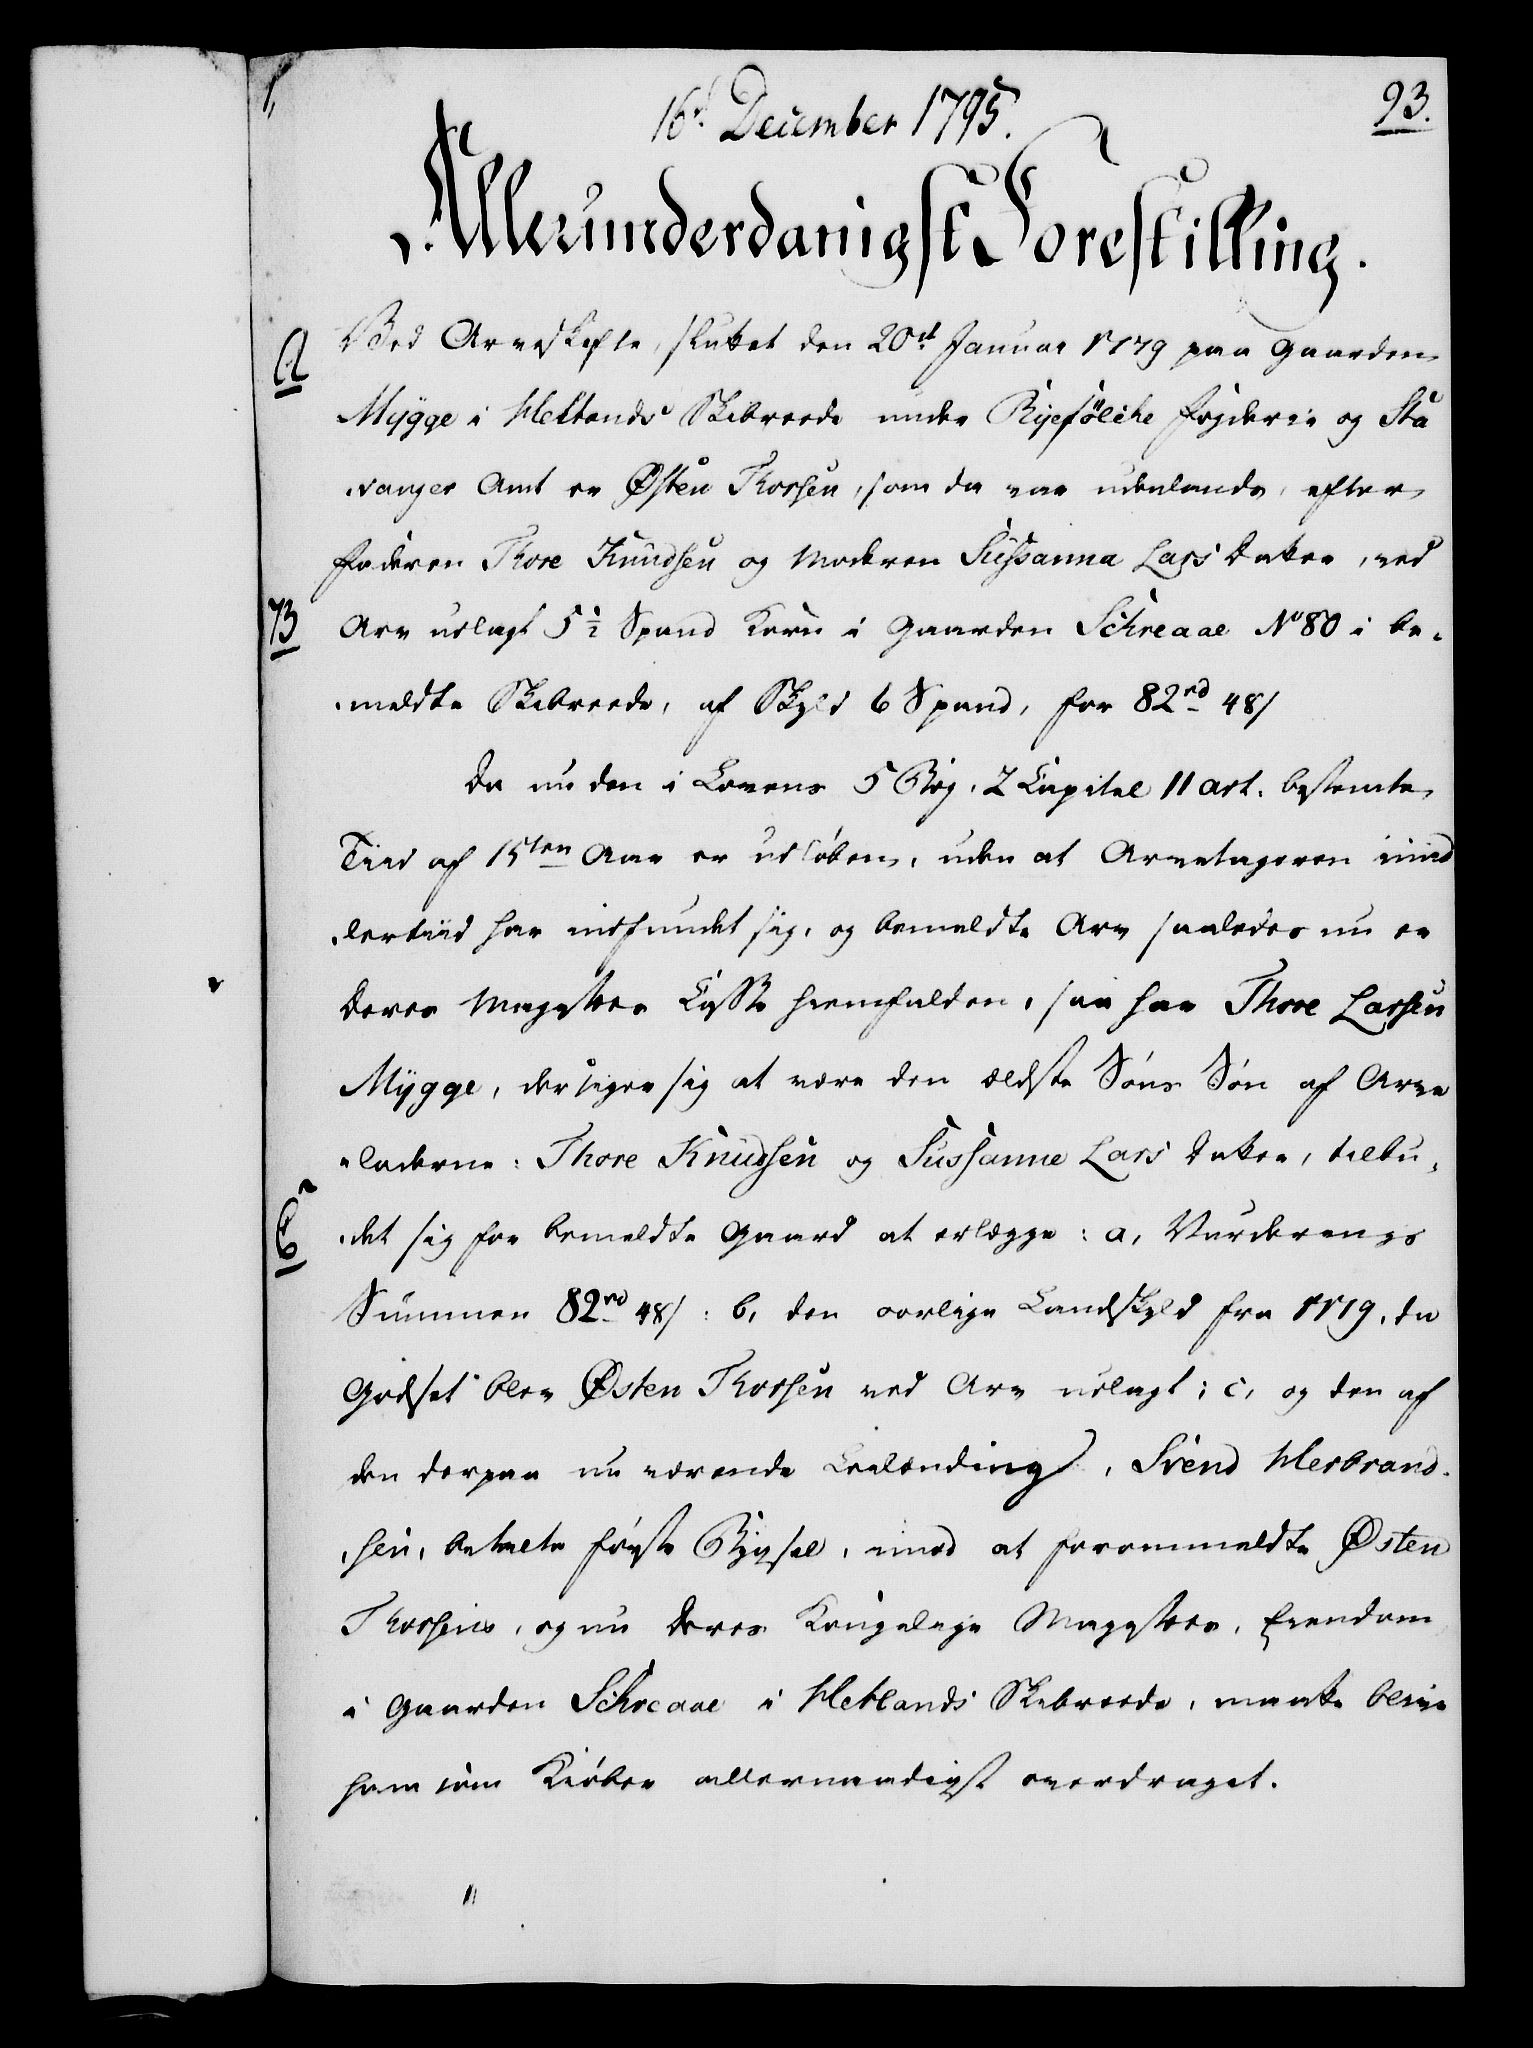 16d December 1795.
93.
Allerunderdanigst Forestilling.
A
Ved Arveskifte, sluttet den 20de Januar 1779 paa Gaarden
Mÿgge i Hetlands Skibreede under Rÿefÿlche Fogderie og Sta
vanger Amt er Østen Thorsen, som da var udenlands, efter
Faderen Thore Knudsen og Moderen Sussanna Lars Datter, ved
B
Arv udlagt 5½ Spand Korn i Gaarden Schreaae No 80 i be-
meldte Skibreede, af Skyld 6 Spand, for 82rd 48/
Da nu den i Lovens 5 Bog. 2 Capitel 11 art. bestemte
Tiid af 15ten Aar er udløben, uden at Arvetageren imid
lertiid har indfundet sig, og bemeldte Arv saaledes nu er
Deres Majestets Casse hiemfalden, saa har Thore Larsen
Mÿgge, der siger sig at være den ældste Søns Søn af Arve
laderne: Thore Knudsen og Sussanne Lars Datter, tilbu-
C
det sig for bemeldte Gaard at erlægge: a, Vurderings
Summen 82rd 48/: b, den aarlige Landskyld fra 1779, da
Godset blev Østen Thorsen ved Arv udlagt; c, og den af
den derpaa nu værende Leilænding, Svend Herbrand-
sen, betalte første Bÿgsel, imod at forommeldte Østen
Thorsens, og nu Deres Kongelige Majestets, Eiendom
i Gaarden Schreaae i Hetlands Skibreede, maatte blive
ham som Kiøber allernaadigst overdraget.